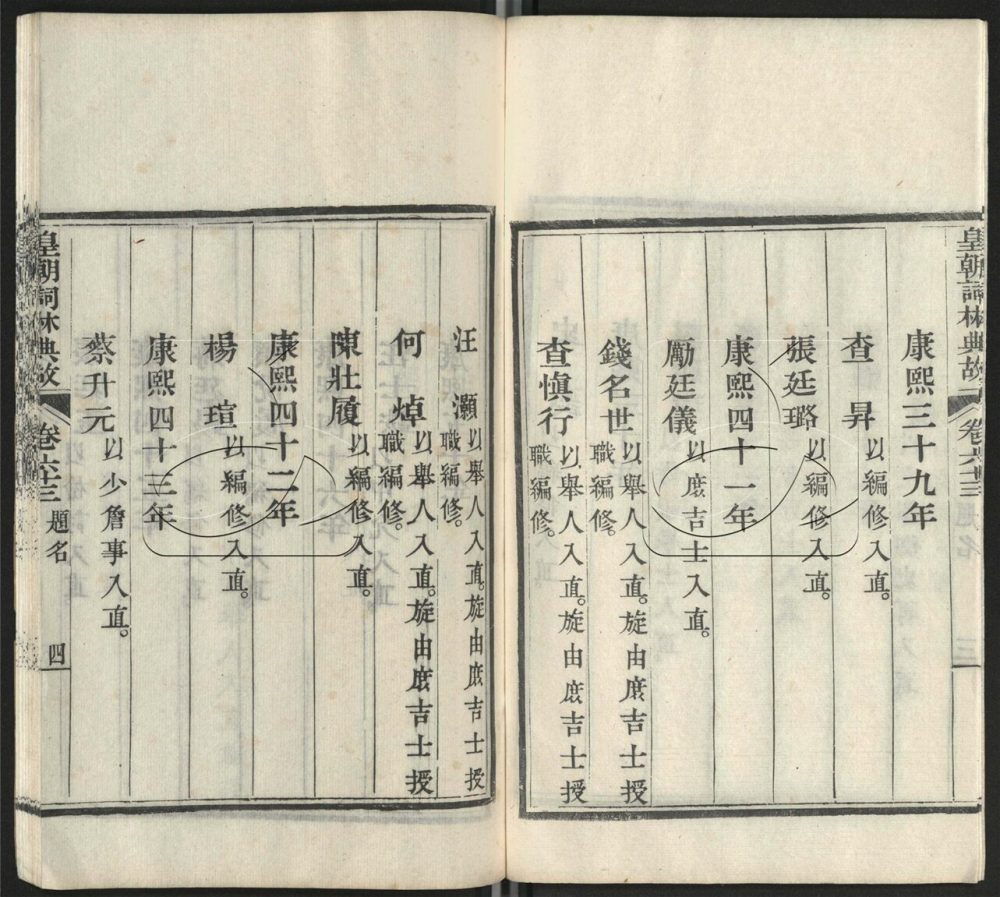 皇朝詞林典故 卷六十三
三
康熙三十九年
查昇以編修入直。
張廷璐以編修入直。
康熙四十一年
勵廷儀以庶吉士入直。
錢名世以舉人入直。旋由庶吉士授職編修。
查慎行以舉人入直。旋由庶吉士授職編修。
汪灝以舉人入直。旋由庶吉士授職編修。
何焯以舉人入直。旋由庶吉士授職編修。
陳壯履以編修入直。
康熙四十二年
楊瑄以編修入直。
康熙四十三年
蔡升元以少詹事入直。
皇朝詞林典故 卷六十三 題名 四